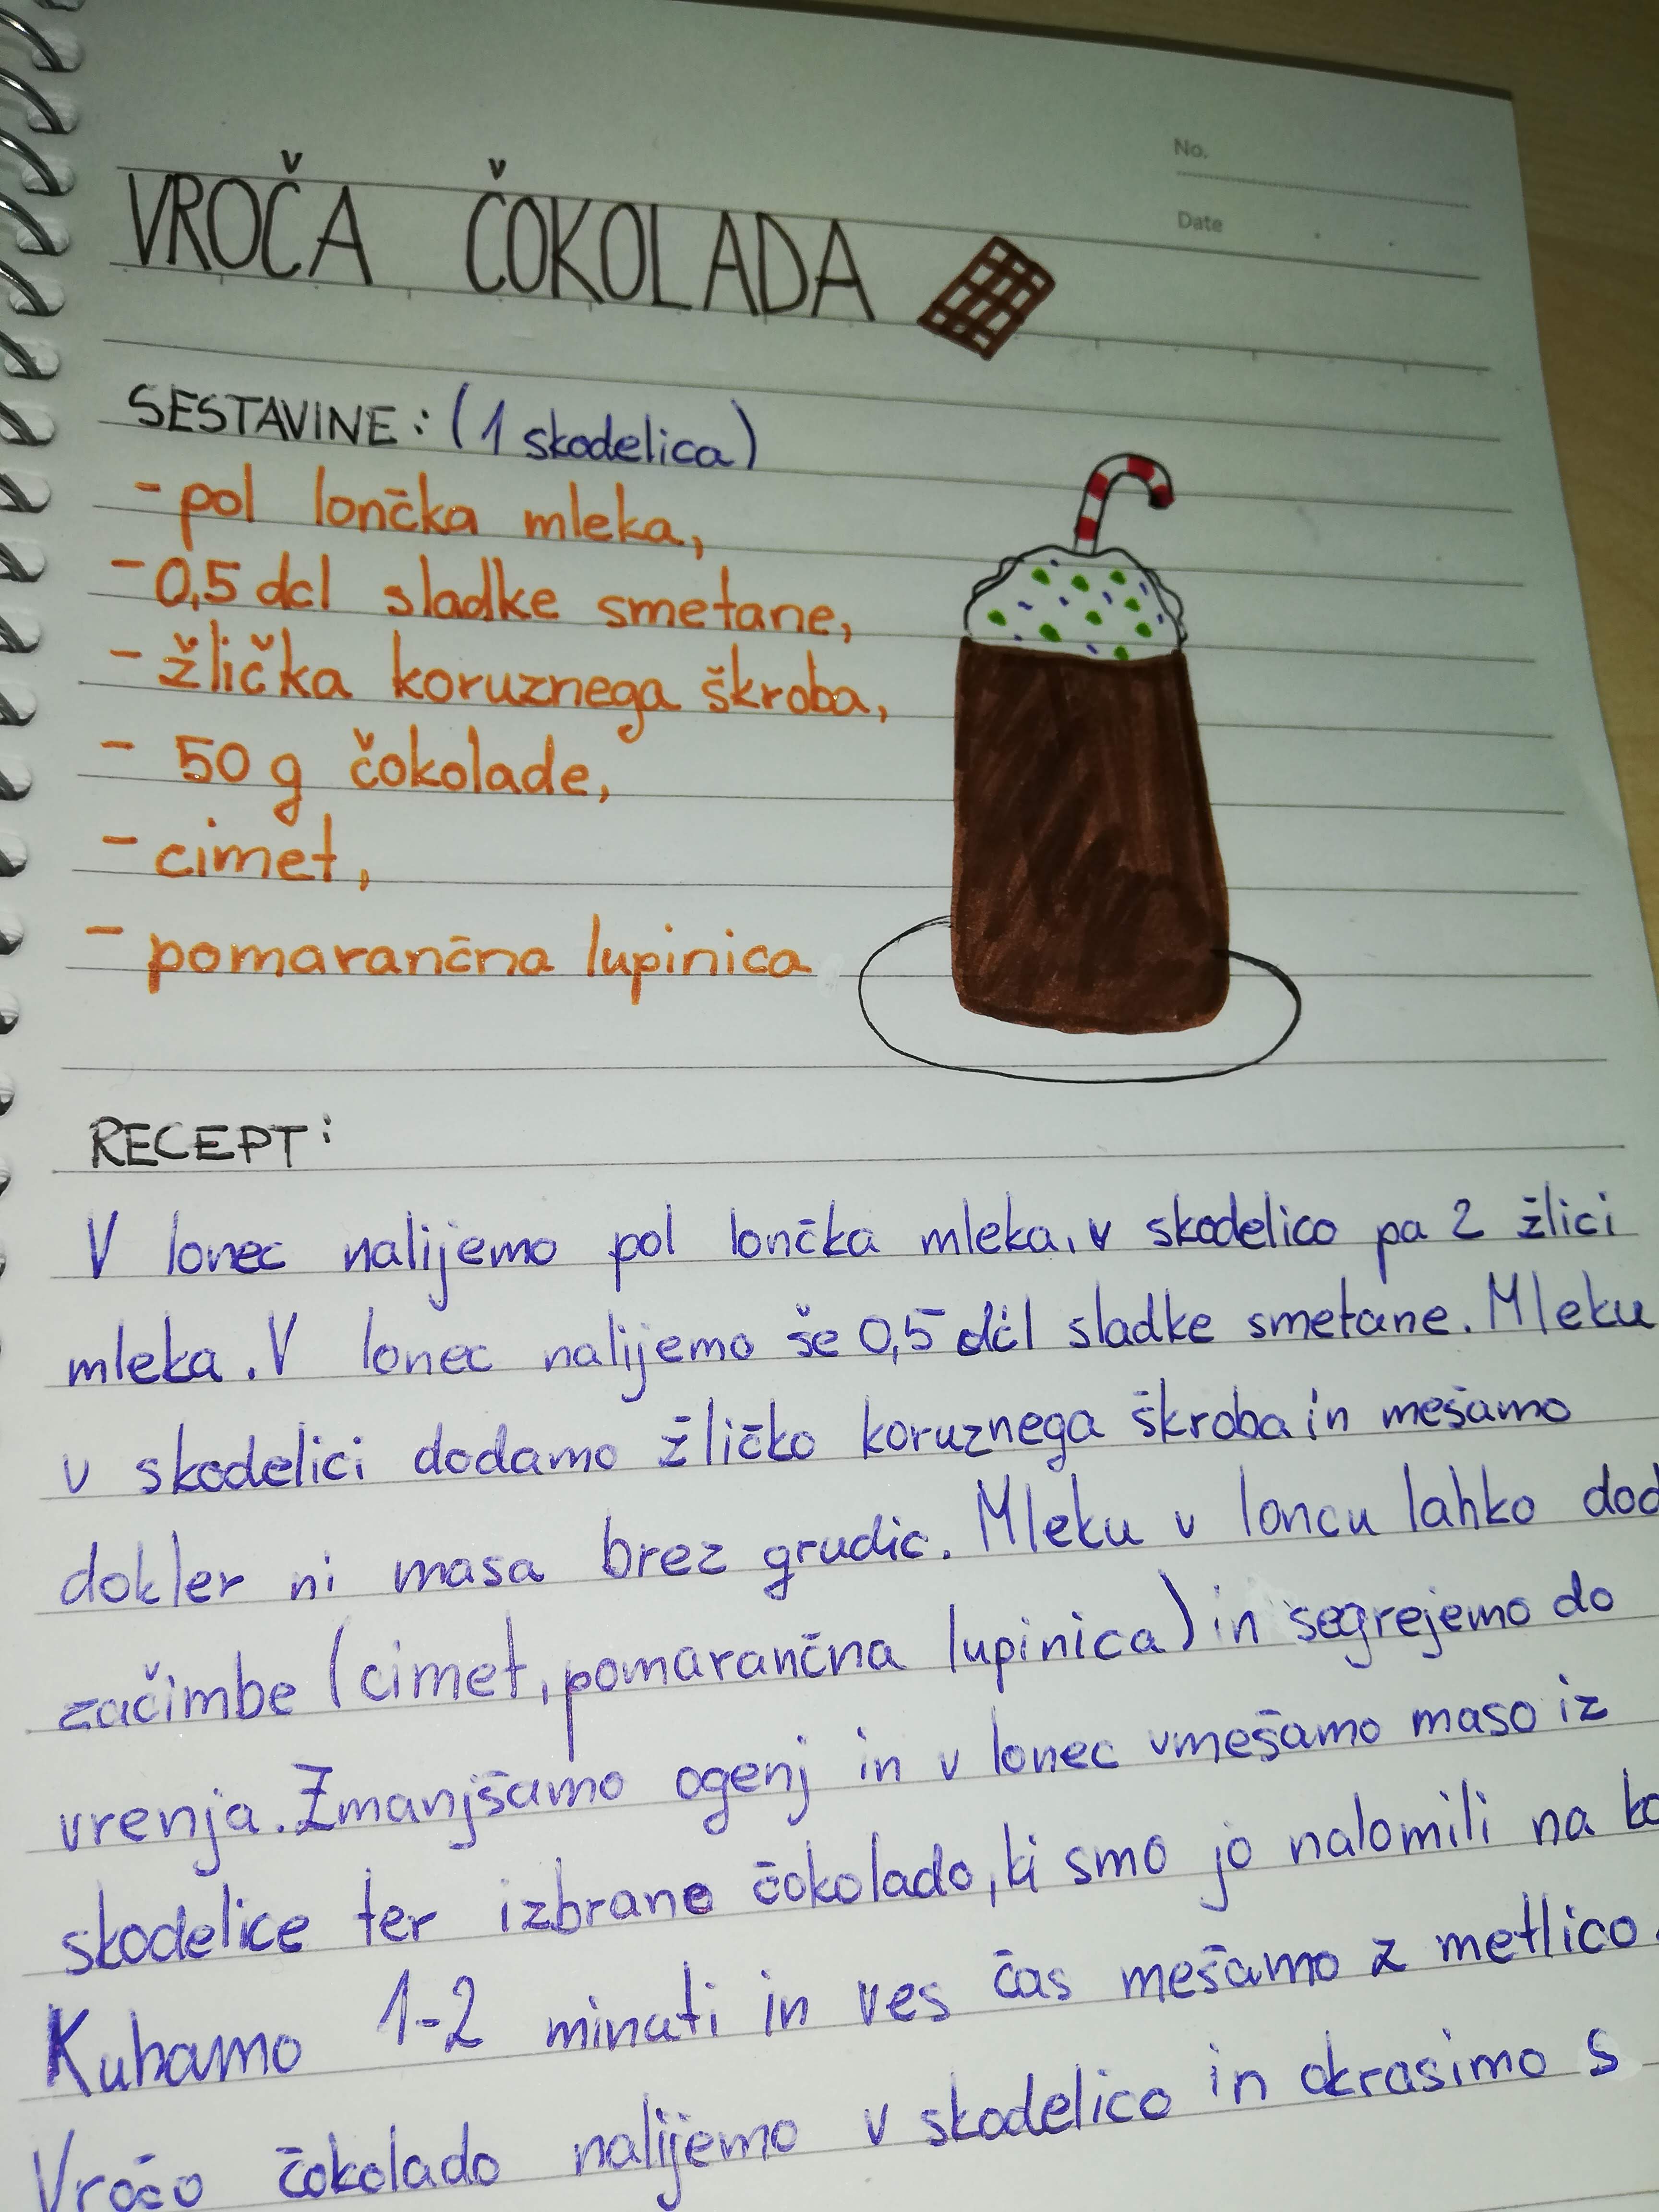 No.
Date
VROČA ČOKOLADA
SESTAVINE: (1 skodelica)
- pol lončka mleka,
- 0,5 dcl sladke smetane,
- žlička koruznega škroba,
- 50 g čokolade,
- cimet,
- pomarančna lupinica
RECEPT:
V lonec nalijemo pol lončka mleka, v skodelico pa 2 žlici
mleka. V lonec nalijemo še 0,5 dcl sladke smetane. Mleku
v skodelici dodamo žličko koruznega škroba in mešamo
dokler ni masa brez grudic. Mleku v loncu lahko dod
začimbe (cimet, pomarančna lupinica) in segrejemo do
vrenja. Zmanjšamo ogenj in v lonec vmešamo maso iz
skodelice ter izbrano čokolado, ki smo jo nalomili na ko
Kuhamo 1-2 minuti in ves čas mešamo z metlico.
Vročo čokolado nalijemo v skodelico in okrasimo s